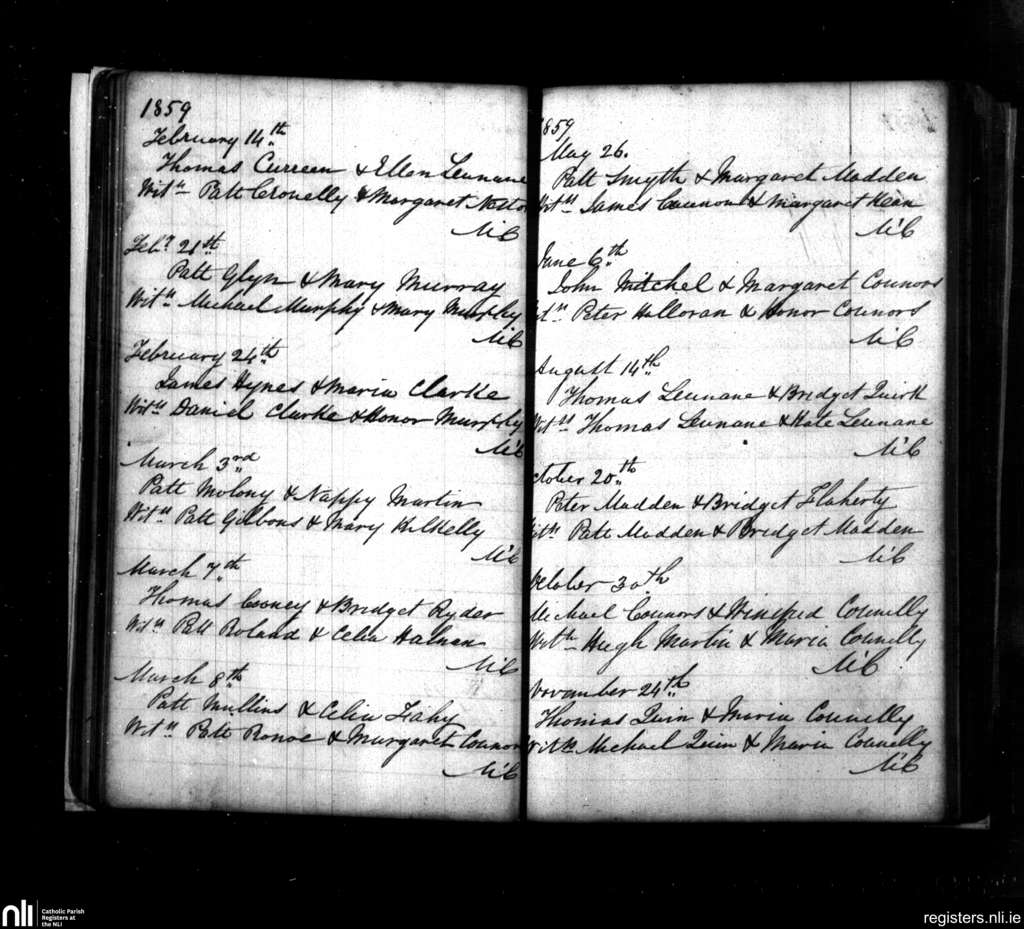 1859
February 14th
Thomas Curreen & Ellen Lennane
Witss Patt Cronelly & Margaret Nestor
McC
Feby 21st
Patt Glyn & Mary Murray
Witss Michael Murphy & Mary Murphy
McC
February 24th
James Hynes & Maria Clarke
Witss Daniel Clarke & Honor Murphy
McC
March 3rd
Patt Molony & Nappy Martin
Witss Patt Gibbons & Mary Kilkelly
McC
March 7th
Thomas Cooney & Bridget Ryder
Witss Patt Roland & Celia
McC
March 8th
Patt Mullins & Celia Fahy
Witss Patt Ronoe & Margaret Connor
McC
1859
May 26.
Patt Smyth & Margaret Madden
Witss James Cannon & Margaret Kean
McC
June 6th
John Mitchel & Margaret Connors
Witss Peter Halloran & Honor Connors
McC
August 14th
Thomas Lennane & Bridget Quirk
Witss Thomas Lennane & Kate Lennane
McC
October 20th
Peter Madden & Bridget Flaherty
Witss Patt Madden & Bridget Madden
McC
October 30th
Michael Connors & Winefred Connelly
Witss Hugh Martin & Maria Connelly
McC
November 24th
Thomas Quin & Maria Connelly
Witss Michael Quin & Maria Connelly
McC
nli
Catholic Parish
Registers at
the NLI
registers.nli.ie